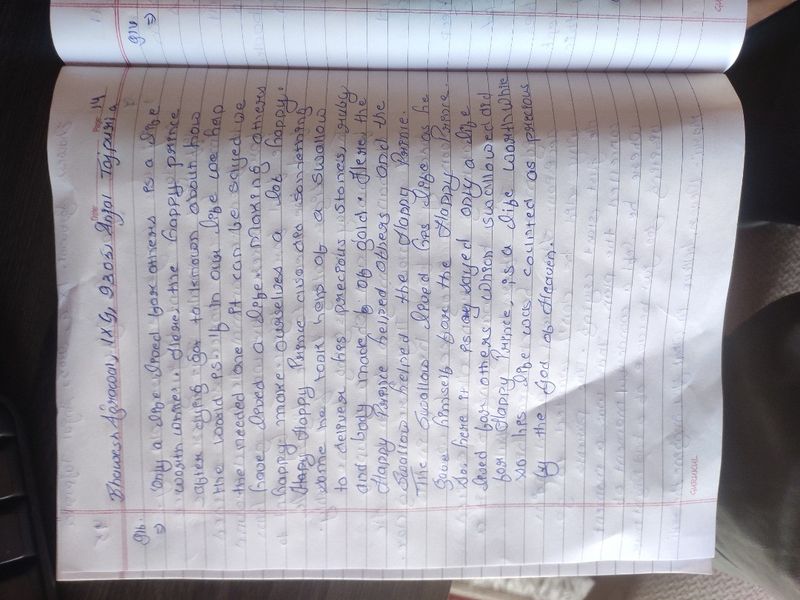 Bhavesh Agrawal, IXG, 9305, Anjal Tajpuria
Page 14
Q16.
⇒ Only a life lived for others is a life
worth while. Here, the happy prince
after dying got to known about how
the world is. If in our life we help
the needed one it can be sayed we
have lived a life. Making others
happy make ourselves a lot happy.
Happy Prince also did something
some he took help of a swallow
to deliver his precious stones, ruby
and body made b of gold. Here, the
Happy Prince helped others and the
Swallow helped the Happy Prince.
The Swallow lived his life as he
gave himself for the Happy Prince.
So, here it is sayed only a life
lived for others, which swallowed did
for Happy Prince, is a life worth while
so his life was counted as precious
by the God of Heaven.
GURUKUL
Q14.
⇒